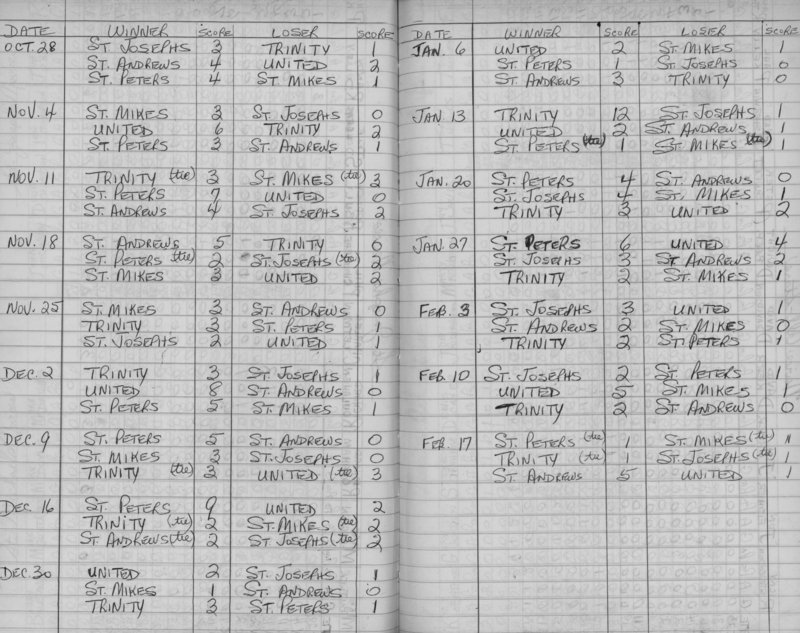 DATE WINNER SCORE LOSER SCORE
OCT. 28 ST. JOSEPHS 3 TRINITY 1
ST. ANDREWS 4 UNITED 2
ST. PETERS 4 ST. MIKES 1
NOV. 4 ST. MIKES 2 ST. JOSEPHS 0
UNITED 6 TRINITY 2
ST. PETERS 3 ST. ANDREWS 1
NOV. 11 TRINITY (tie) 3 ST. MIKES (tie) 3
ST. PETERS 7 UNITED 0
ST. ANDREWS 4 ST. JOSEPHS 2
NOV. 18 ST. ANDREWS 5 TRINITY 0
ST. PETERS (tie) 2 ST. JOSEPHS (tie) 2
ST. MIKES 3 UNITED 2
NOV. 25 ST. MIKES 3 ST. ANDREWS 0
TRINITY 3 ST. PETERS 1
ST. JOSEPHS 2 UNITED 1
DEC. 2 TRINITY 3 ST. JOSEPHS 1
UNITED 8 ST. ANDREWS 0
ST. PETERS 5 ST. MIKES 1
DEC. 9 ST. PETERS 5 ST. ANDREWS 0
ST. MIKES 3 ST. JOSEPHS 0
TRINITY (tie) 3 UNITED (tie) 3
DEC. 16 ST. PETERS 9 UNITED 2
TRINITY (tie) 2 ST. MIKES (tie) 2
ST ANDREWS (tie) 2 ST JOSEPHS (tie) 2
DEC. 30 UNITED 2 ST. JOSEPHS 1
ST. MIKES 1 ST. ANDREWS 0
TRINITY 3 ST. PETERS 1
DATE WINNER SCORE LOSER SCORE
JAN. 6 UNITED 2 ST. MIKES 1
ST. PETERS 1 ST. JOSEPHS 0
ST. ANDREWS 3 TRINITY 0
JAN. 13 TRINITY 12 ST. JOSEPHS 1
UNITED 2 ST. ANDREWS 1
ST. PETERS (tie) 1 ST. MIKES (tie) 1
JAN. 20 ST. PETERS 4 ST. ANDREWS 0
ST. JOSEPHS 4 ST. MIKES 1
TRINITY 3 UNITED 2
JAN. 27 ST. PETERS 6 UNITED 4
ST. JOSEPHS 3 ST ANDREWS 2
TRINITY 2 ST. MIKES 1
FEB. 3 ST. JOSEPHS 3 UNITED 1
ST. ANDREWS 2 ST. MIKES 0
TRINITY 2 ST. PETERS 1
FEB. 10 ST. JOSEPHS 2 ST. PETERS 1
UNITED 5 ST. MIKES 1
TRINITY 2 ST ANDREWS 0
FEB. 17 ST. PETERS (tie) 1 ST. MIKES (tie) 1
TRINITY (tie) 1 ST. JOSEPHS (tie) 1
ST. ANDREWS 5 UNITED 1